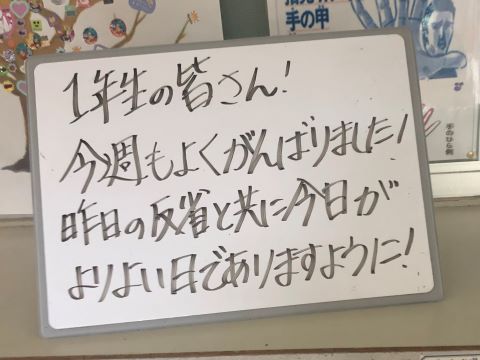 手の甲
手のひら側
1年生の皆さん!
今週もよくがんばりました!
昨日の反省と共に今日が
よりよい日でありますように!